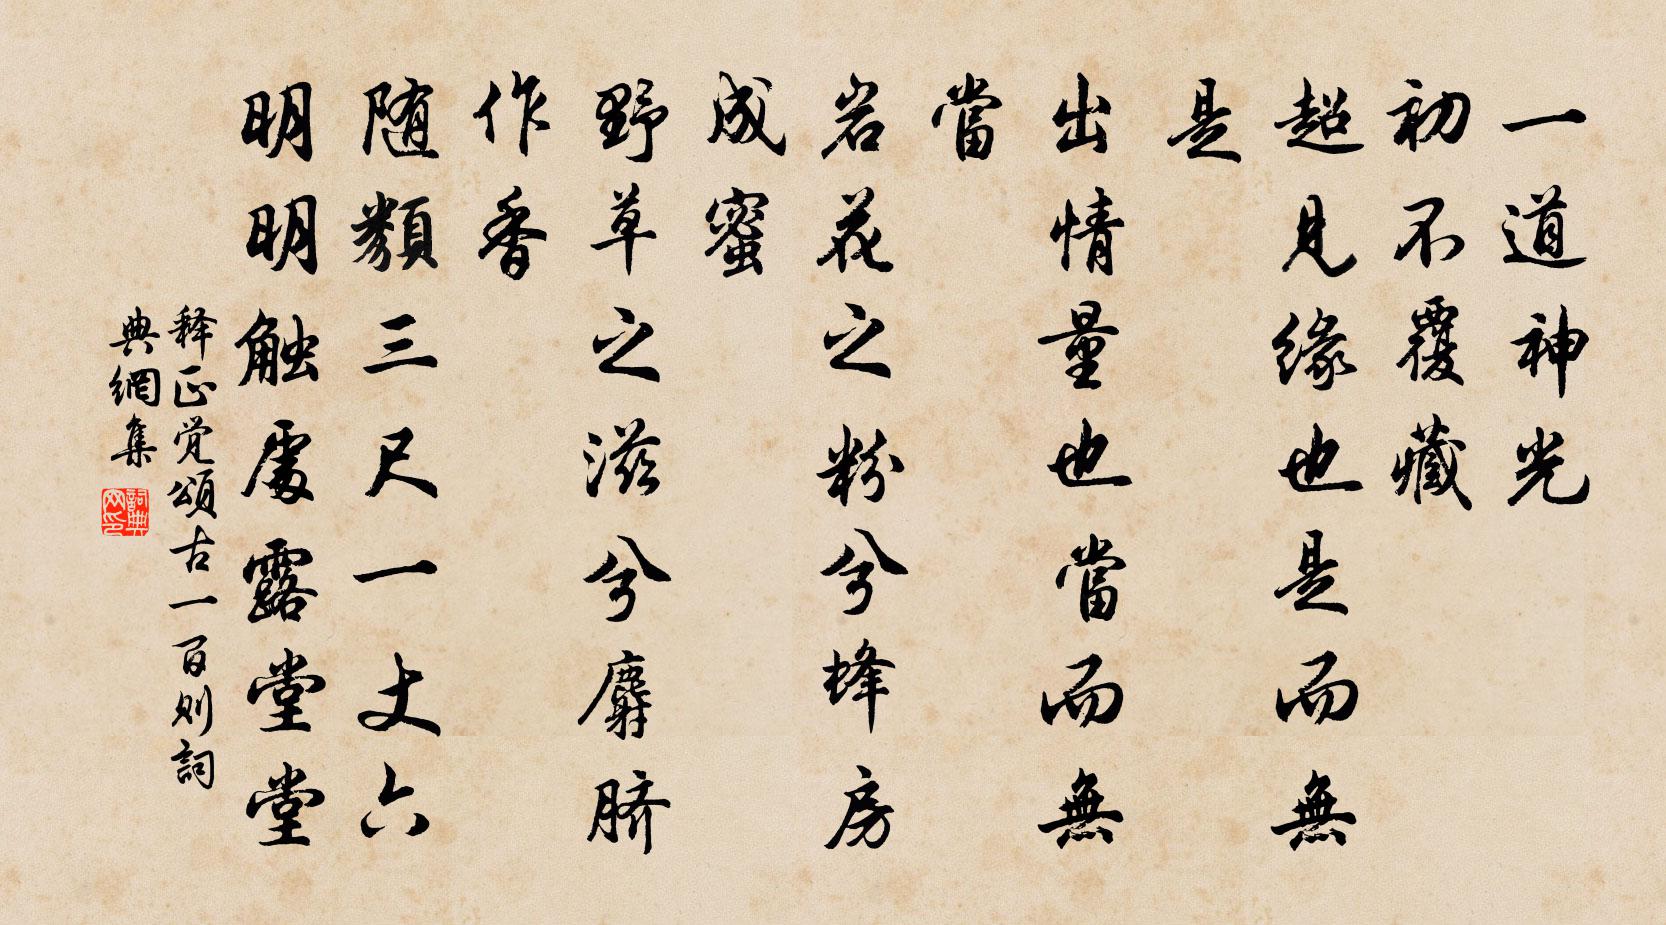 一道神光
初不覆藏
超見缘也是而無
是
出情量也當而無
當
岩花之粉兮蜂房
成蜜
野草之滋兮麝脐
作香
随類三尺一丈六
明明触處露堂堂
释正覚頌古一百则詞
典網集
詞典
网印